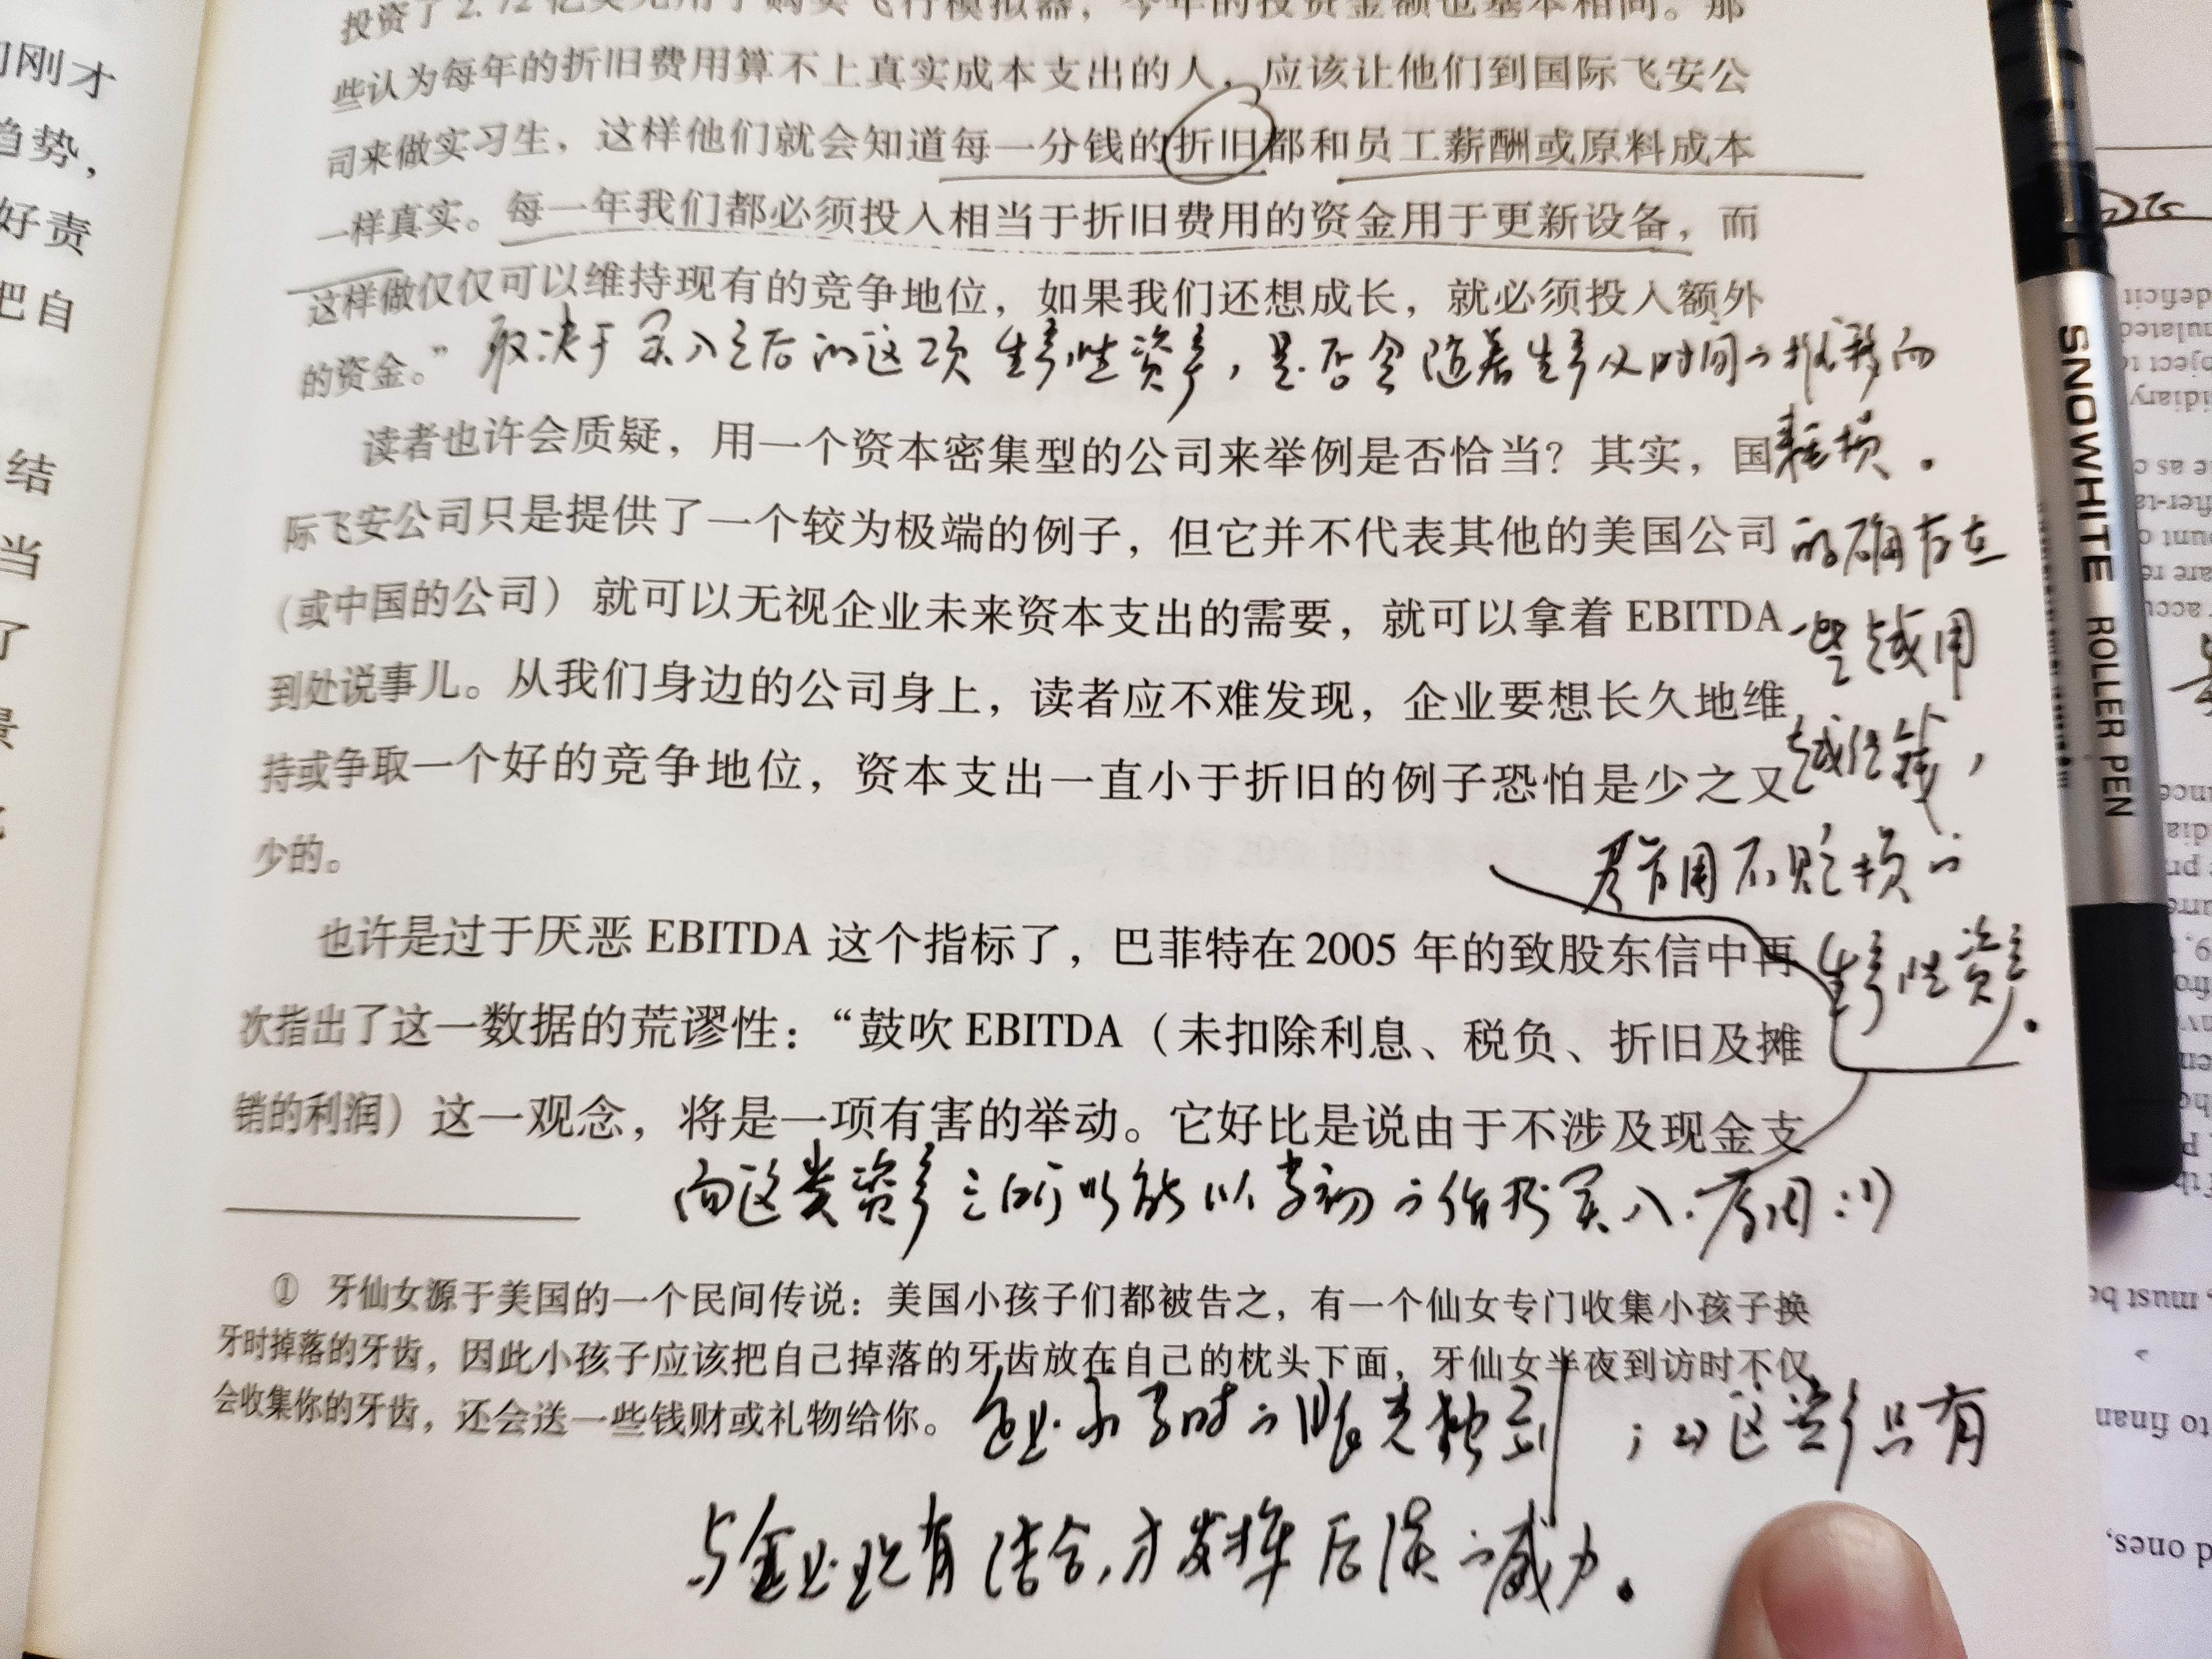 投资了2.72亿美元用于购买飞行模拟器，今年的投资金额也基本相同。那
些认为每年的折旧费用算不上真实成本支出的人，应该让他们到国际飞安公
司来做实习生，这样他们就会知道每一分钱的折旧都和员工薪酬或原料成本
一样真实。每一年我们都必须投入相当于折旧费用的资金用于更新设备，而
这样做仅仅可以维持现有的竞争地位，如果我们还想成长，就必须投入额外
的资金。”
取决于买入之后的这项生产性资产，是否会随着生产及时间的推移而
耗损。
读者也许会质疑，用一个资本密集型的公司来举例是否恰当？其实，国
际飞安公司只是提供了一个较为极端的例子，但它并不代表其他的美国公司
（或中国的公司）就可以无视企业未来资本支出的需要，就可以拿着EBITDA
到处说事儿。从我们身边的公司身上，读者应不难发现，企业要想长久地维
持或争取一个好的竞争地位，资本支出一直小于折旧的例子恐怕是少之又
少的。
的确存在
一些越用
越值钱，
用不贬损的
生产性资产。
也许是过于厌恶EBITDA这个指标了，巴菲特在2005年的致股东信中再
次指出了这一数据的荒谬性：“鼓吹EBITDA（未扣除利息、税负、折旧及摊
销的利润）这一观念，将是一项有害的举动。它好比是说由于不涉及现金支
而这类资产之所以能以当初的价格买入，原因：1)
① 牙仙女源于美国的一个民间传说：美国小孩子们都被告之，有一个仙女专门收集小孩子换
牙时掉落的牙齿，因此小孩子应该把自己掉落的牙齿放在自己的枕头下面，牙仙女半夜到访时不仅
会收集你的牙齿，还会送一些钱财或礼物给你。
眼光独到；2)这资产只有
与企业现有结合，才发挥后误的威力。
SNOWHITE ROLLER PEN
们刚才
趋势，
好责
把自
结
当
了
景